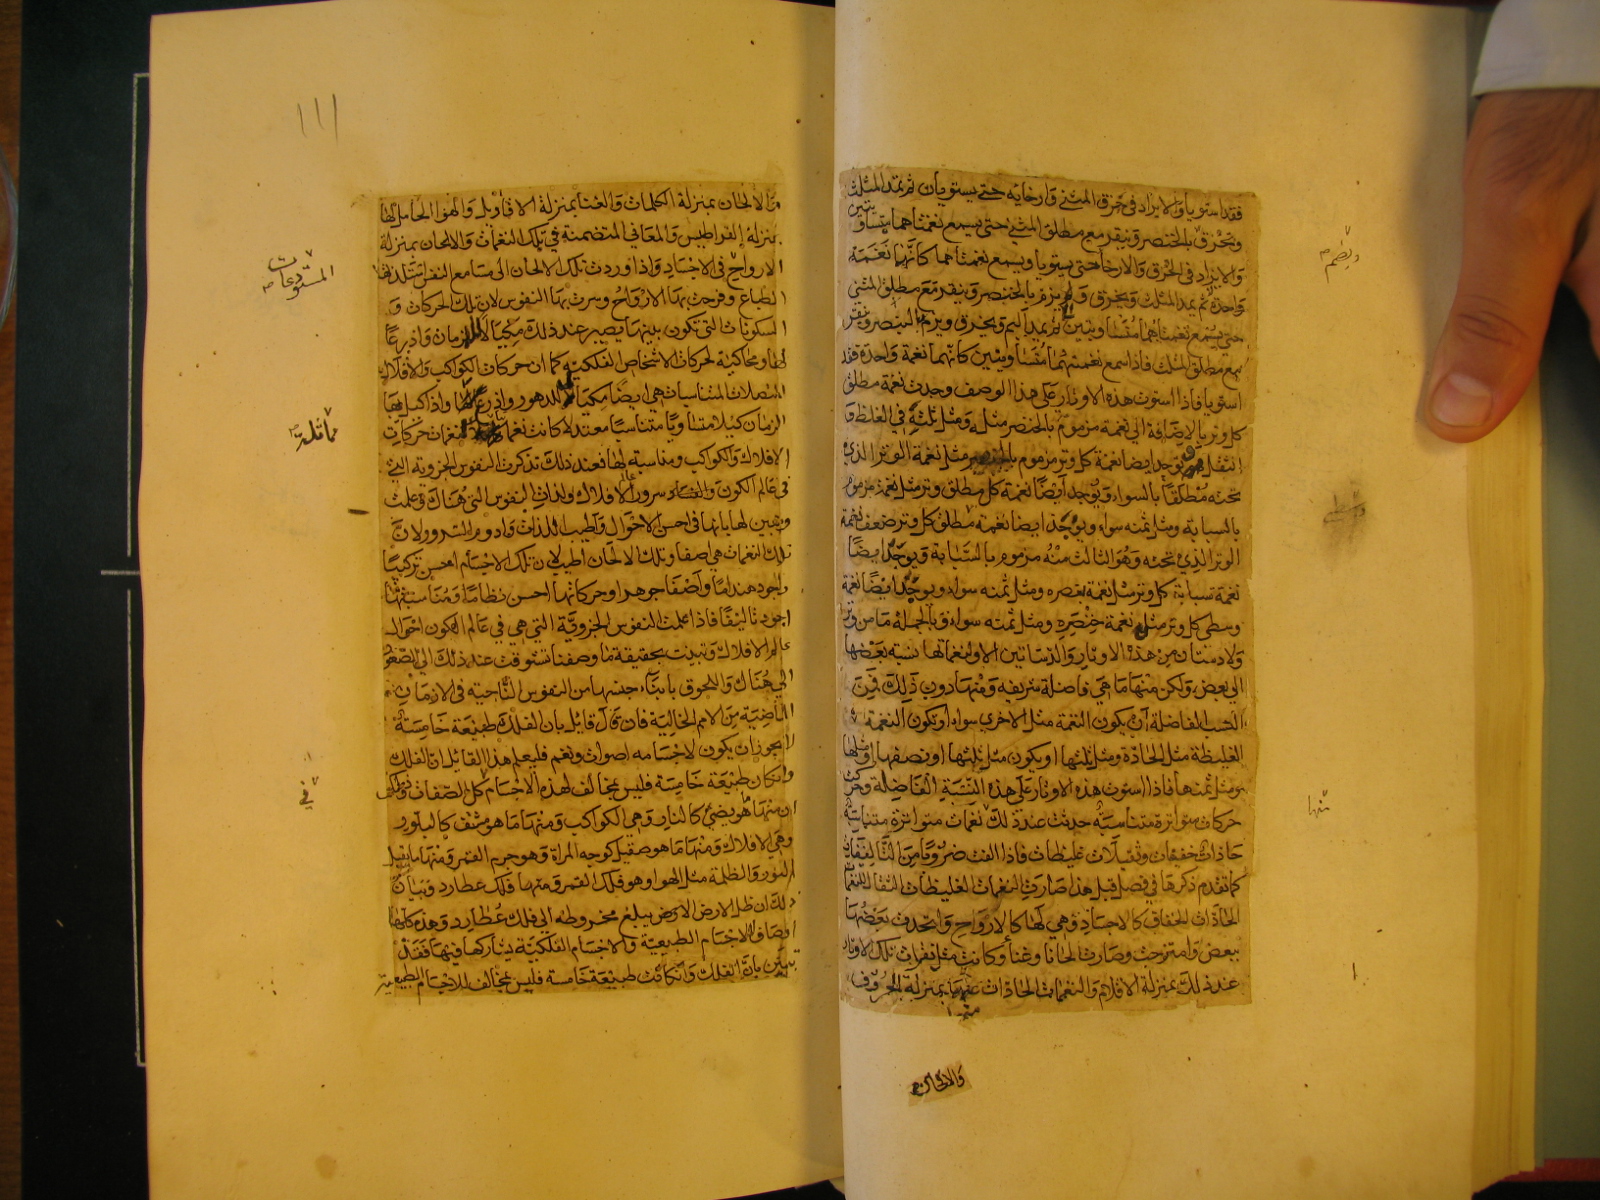 فقد استويا والا يزاد في حزق المثنى وارخايه حتى يستويان ثم يمد المثلث
ويحزق بالخنصر وينقر مع مطلق المثنى حتى يسمع نغمتاهما متساويتين
والا يزاد في الحزق والارخا حتى يستويا ويسمع نغمتاهما كانهما نغمة
واحدة ثم يمد المثلث ويحزق و يزم بالخنصر وينقر مع مطلق المثنى
حتى يسمع نغمتاهما متساويتين ثم يمد البم ويحزق ويزم الخنصر وينقر
مع مطلق المثلث فاذا سمع نغمتهما متساويتين كانهما نغمة واحدة فقد
استويا فاذا استوت هذه الاوتار على هذا الوصف وجدت نغمة مطلق
كل وتر بالاضافة الى نغمة مزموم بالخنصر مثله ومثل ثلثه في الغلظ و
الثقل ويوجد ايضا نغمة كل وتر مزموم بالخنصر مثل نغمة الوتر الذي
تحته مطلقا بالسواء ويوجد ايضا نغمة كل مطلق وتر مثل نغمة مزموم
بالسبابة ومثل ثمنه سواء ويوجد ايضا نغمة مطلق كل وتر ضعف نغمة
الوتر الذي تحته وهو الثالث منه مزموم بالسبابة ويوجد ايضا
نغمة سبابة كل وتر مثل نغمة بنصره ومثل ثمنه سواء ويوجد ايضا نغمة
وسطى كل وتر مثل نغمة خنصره ومثل ثمنه سواء وبالجملة ما من وتر
ولا دستان من هذه الاوتار والدساتين الا ولنغماتها نسبة بعضها
الى بعض ولكن منها ما هي فاضلة شريفة ومنها دون ذلك فمن
النسب الفاضلة ان يكون النغمة مثل الاخرى سواء او تكون النغمة
الغليظة مثل الحادة ومثل ثلثها او يكون مثل ثلثها او نصفها او مثلها
ومثل ثمنها فاذا استوت هذه الاوتار على هذه النسبة الفاضلة وحركت
حركات متواترة متناسبة حدثت عند ذلك نغمات متواترة متناسبة
حادات خفيفات وثقيلات غليظات فاذا الفت ضروبا من التاليفات
كما تقدم ذكرها في فصل قبل هذا صارت النغمات الغليظات الثقال للنغمات
الحادات الخفاف كالاجساد وهي لها كالارواح واتحدت بعضها
ببعض وامتزجت وصارت الحانا وغنا وكانت مثل نقرات تلك الاوتار
عند ذلك بمنزلة الاقلام والنغمات الحادثات عنها بمنزلة الحروف
منها
والالحان
ويضم
منها
١١١
والالحان بمنزلة الكلمات والغنا بمنزلة الاقاويل والهوا الحامل لها
بمنزلة القراطيس والمعاني المتضمنة في تلك النغمات والالحان بمنزلة
الارواح في الاجساد واذا وردت تلك الالحان الى مسامع النفس تتلذذ بها
الطباع وفرحت بها الارواح وسرت بها النفوس لان تلك الحركات و
السكونات التي تكون بينها يصير عند ذلك مكيالا للزمان واذرعا
لها ومحاكية لحركات الاشخاص الفلكية كما ان حركات الكواكب والافلاك
المتصلات المتناسبات هي ايضا مكيال للدهور واذرع لها واذا كيل بها
الزمان كيلا متساويا متناسبا معتدلا كانت نغماتها لنغمات حركات
الافلاك والكواكب ومناسبة لها فعند ذلك تذكرت النفوس الجزوية التي
في عالم الكون والفساد سرور عالم الافلاك ولذات النفوس التي هناك وعلمت
وتبين لها بانها في احسن الاحوال واطيب اللذات وادوم السرور ولان
تلك النغمات هي اصفا وتلك الالحان اطيب لان تلك الاجسام احسن تركيبا
واجود هنداما واصفا جوهرا وحركاتها احسن نظاما ومناسبتها
اجود تاليفا فاذا علمت النفوس الجزوية التي هي في عالم الكون احوال
عالم الافلاك وتبينت بحقيقة ما وصفنا تشوقت عند ذلك الى الصعود
الى هناك واللحوق بابناء جنسها من النفوس الناجية في الازمان
الماضية من الامم الخالية فان قال قائل بان الفلك طبيعة خامسة
لا يجوز ان يكون لاجسامه اصوات ونغم فليعلم هذا القائل ان الفلك
وان كان طبيعة خامسة فليس بمخالف لهذه الاجسام كل الصفات وذلك
ان منها ما هو يضئ كالنار وهي الكواكب ومنها ما هو مشف كالبلور
وهي الافلاك ومنها ما هو صقيل كوجه المراة وهو جرم القمر ومنها ما يقبل
النور والظلمة مثل الهوا وهو فلك القمر ومنها فلك عطارد وبيان
ذلك ان ظل الارض يبلغ مخروطه الى فلك عطارد وهذه كلها
اوصاف الاجسام الطبيعية والاجسام الفلكية يشاركها فيها فقد
تبين بان الفلك وان كانت طبيعة خامسة فليس بمخالف للاجسام الطبيعية
المستودعات
مماثلة
في